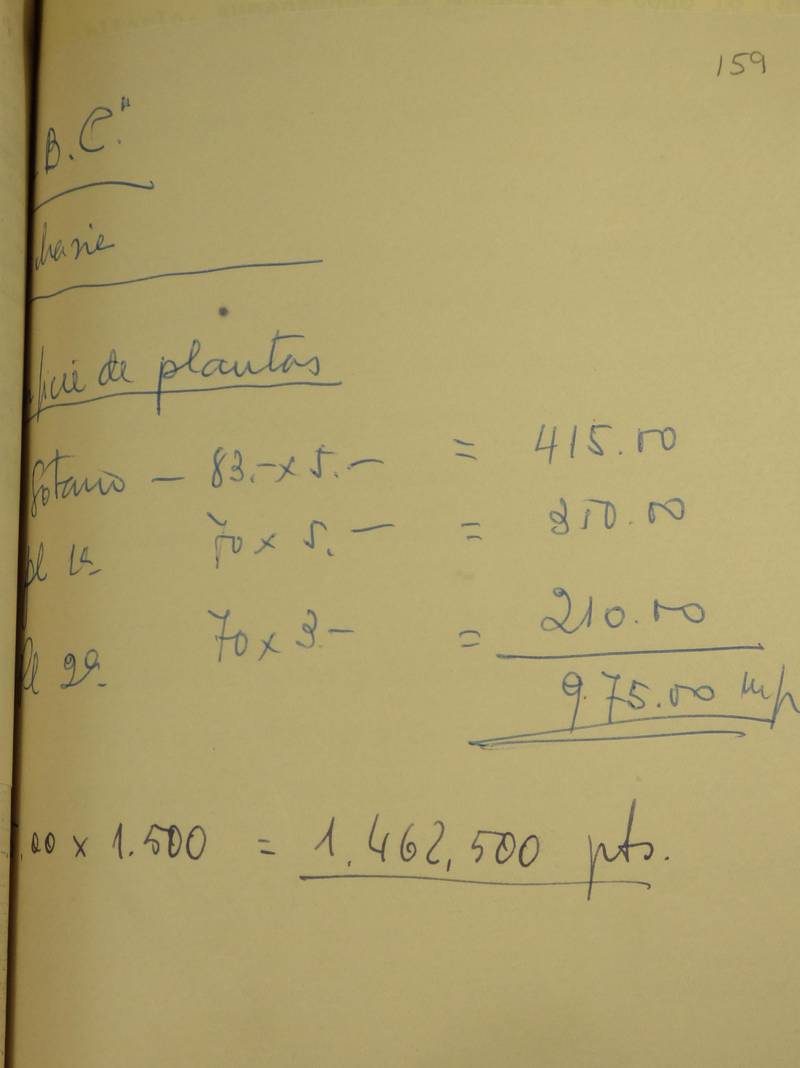 159
.B.C."
ficie de plantas
Sotano — 83.- x 5.— = 415.00
pl 1ª 70 x 5.— = 350.00
pl 2ª 70 x 3.— = 210.00
975.00 mp
.00 x 1.500 = 1.462,500 pts.